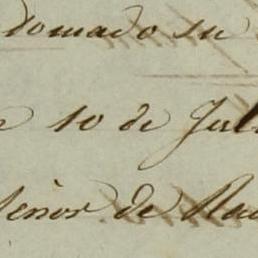 domado su
10 de Jul
Señor de